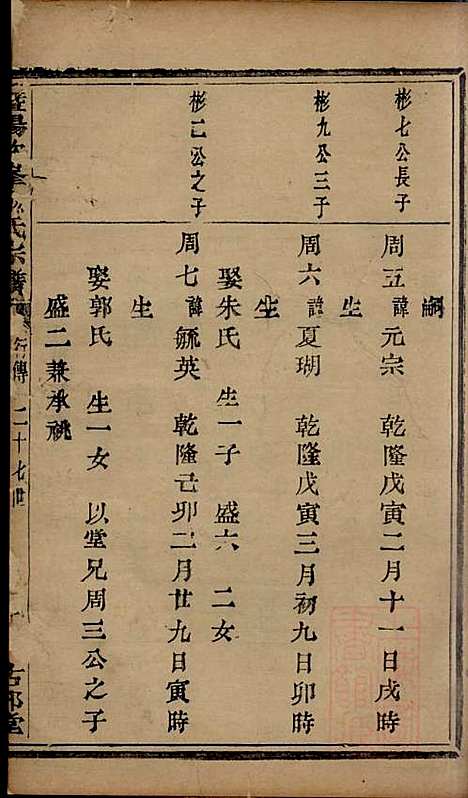 嗣
彬七公長子
周五諱元宗 乾隆戊寅二月十一日戌時
生
彬九公三子
周六諱夏瑚 乾隆戊寅三月初九日卯時
生
娶朱氏 生一子 盛六 二女
彬二公之子
周七諱毓英 乾隆己卯二月廿九日寅時
生
娶郭氏 生一女 以堂兄周三公之子
盛二兼承祧
氏宗譜 傳 二十七世